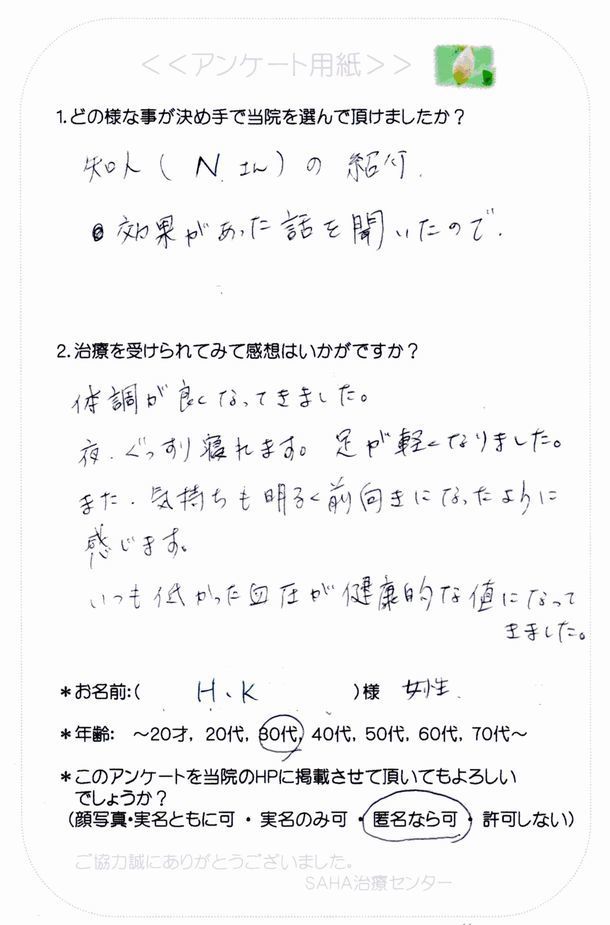 <<アンケート用紙>>
1.どの様な事が決め手で当院を選んで頂けましたか？
知人（N.さん）の紹介.
●効果があった話を聞いたので.
2.治療を受けられてみて感想はいかがですか？
体調が良くなってきました。
夜.ぐっすり寝れます。足が軽くなりました。
また.気持ちも明るく前向きになったように
感じます。
いつも低かった血圧が健康的な値になって
きました。
＊お名前:( H.K )様 女性.
＊年齢: ～20才, 20代, 30代, 40代, 50代, 60代, 70代～
＊このアンケートを当院のHPに掲載させて頂いてもよろしい
でしょうか？
(顔写真・実名ともに可 ・ 実名のみ可 ・ 匿名なら可 ・ 許可しない)
ご協力誠にありがとうございました。
SAHA治療センター